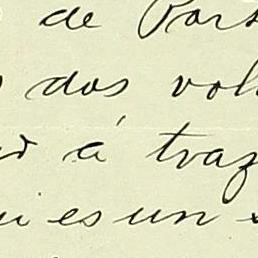 de Pars
dos vol
á traz
es un